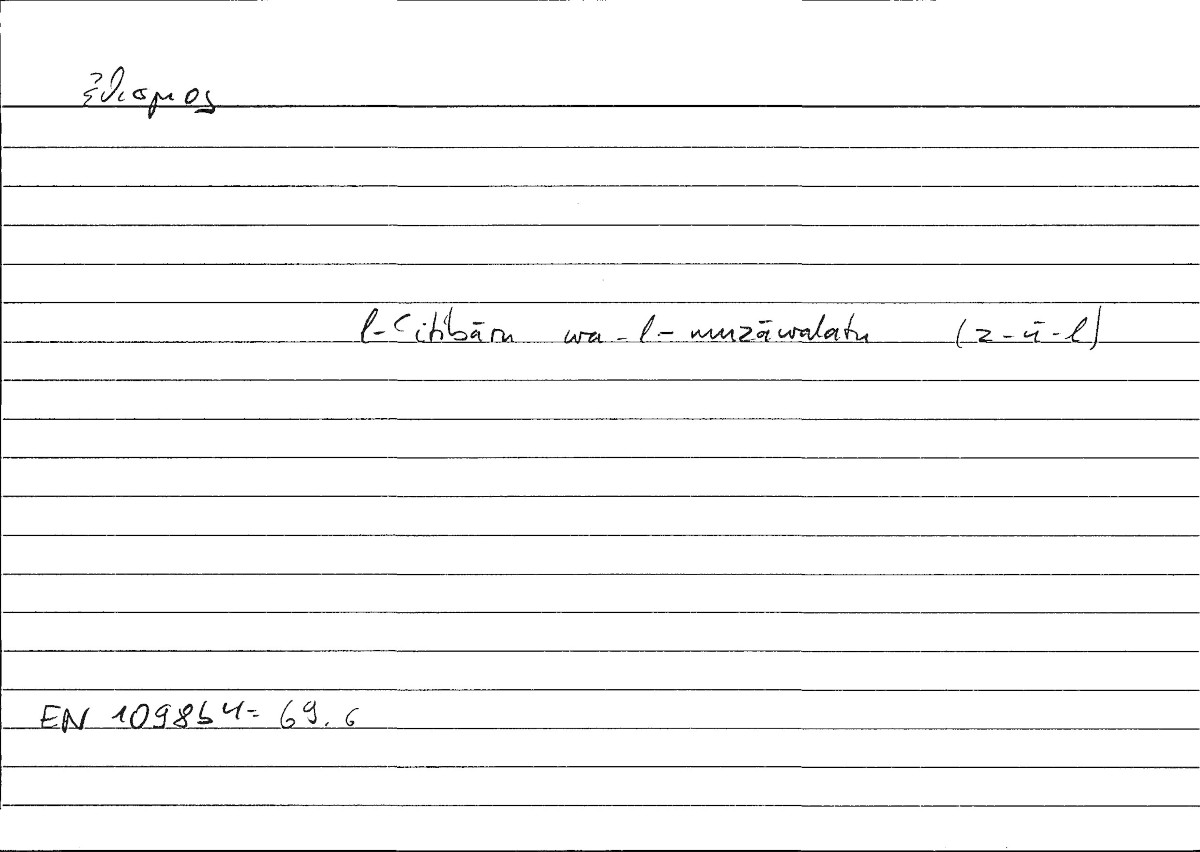 ἐθισμος
l-ʿitibāru wa-l-muzāwalatu (z-ū-l)
EN 1098b4 = 69.6